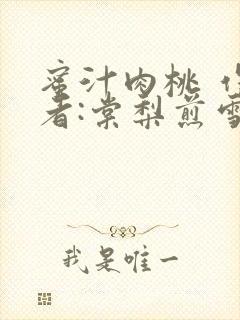 蜜汁肉桃 作
者:棠梨煎雪
我是唯一